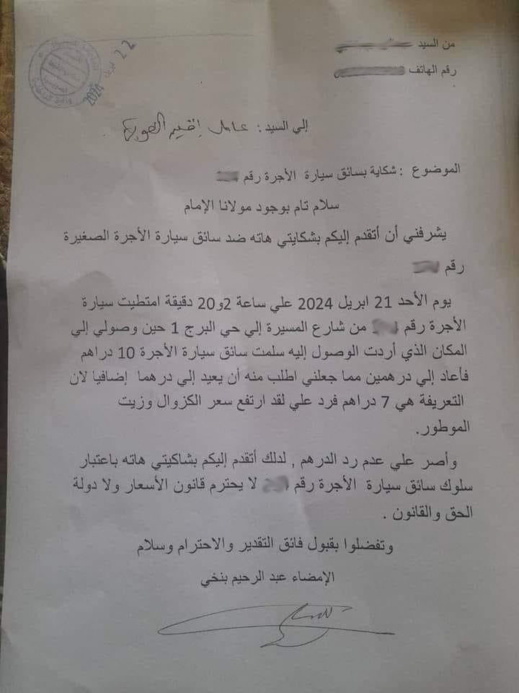 من السيد
رقم الهاتف
22
2024
إلي السيد : عامل إقليم الصويرة
الموضوع : شكاية بسائق سيارة الأجرة رقم
سلام تام بوجود مولانا الإمام
يشرفني أن أتقدم إليكم بشكايتي هاته ضد سائق سيارة الأجرة الصغيرة
رقم
يوم الأحد 21 ابريل 2024 علي ساعة 2و20 دقيقة امتطيت سيارة
الأجرة رقم من شارع المسيرة إلي حي البرج 1 حين وصولي إلي
المكان الذي أردت الوصول إليه سلمت سائق سيارة الأجرة 10 دراهم
فأعاد إلي درهمين مما جعلني اطلب منه أن يعيد إلي درهما إضافيا لان
التعريفة هي 7 دراهم فرد علي لقد ارتفع سعر الكزوال وزيت
الموطور.
وأصر علي عدم رد الدرهم , لدلك أتقدم إليكم بشاكيتي هاته باعتبار
سلوك سائق سيارة الأجرة رقم لا يحترم قانون الأسعار ولا دولة
الحق والقانون .
وتفضلوا بقبول فائق التقدير والاحترام وسلام
الإمضاء عبد الرحيم بنخي